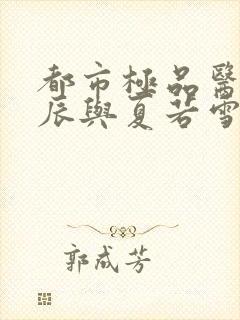 都市極品醫
辰與夏若雪
郭成芳